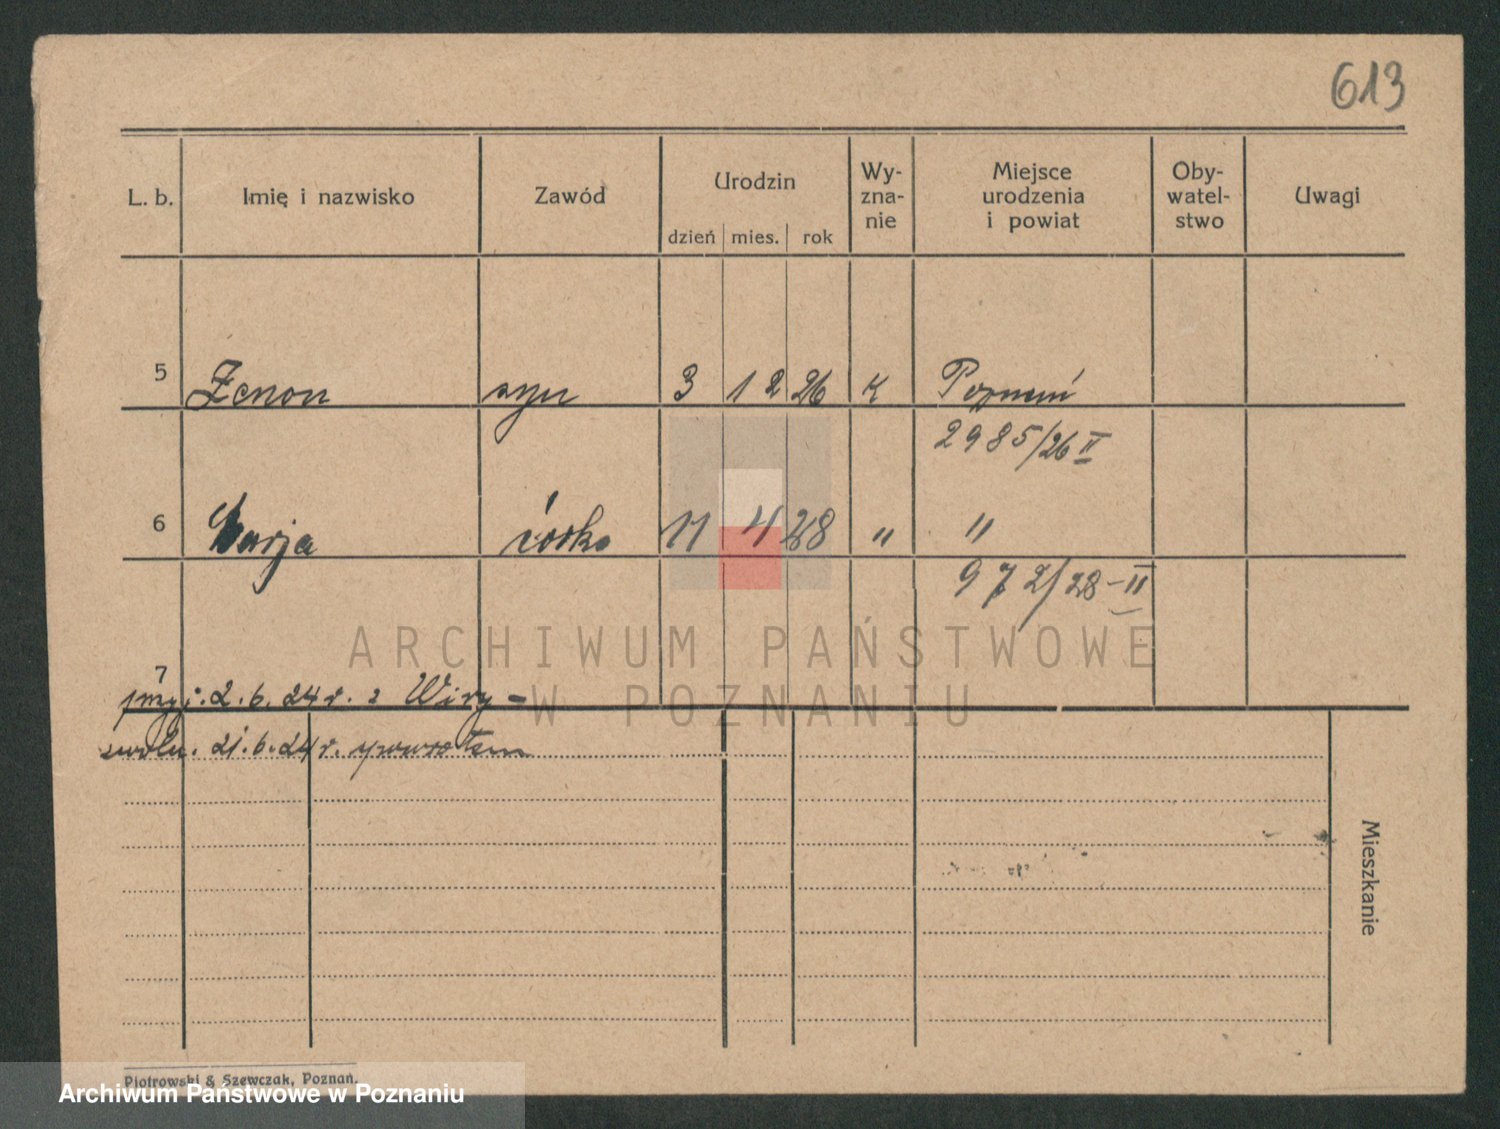 613
L. b. Imię i nazwisko Zawód Urodzin dzień mies. rok Wy-zna-nie Miejsce urodzenia i powiat Oby-watel-stwo Uwagi
5 Zenon syn 3 12 26 K Poznań
2985/26 II
6 Marja córka 11 4 28 " "
972/28-II
ARCHIWUM PAŃSTWOWE
W POZNANIU
7
przyj. 2.6.24 r. z Wiry -
21.6.24 r. zpowrotem
Mieszkanie
Piotrowski & Szewczak, Poznań.
Archiwum Państwowe w Poznaniu